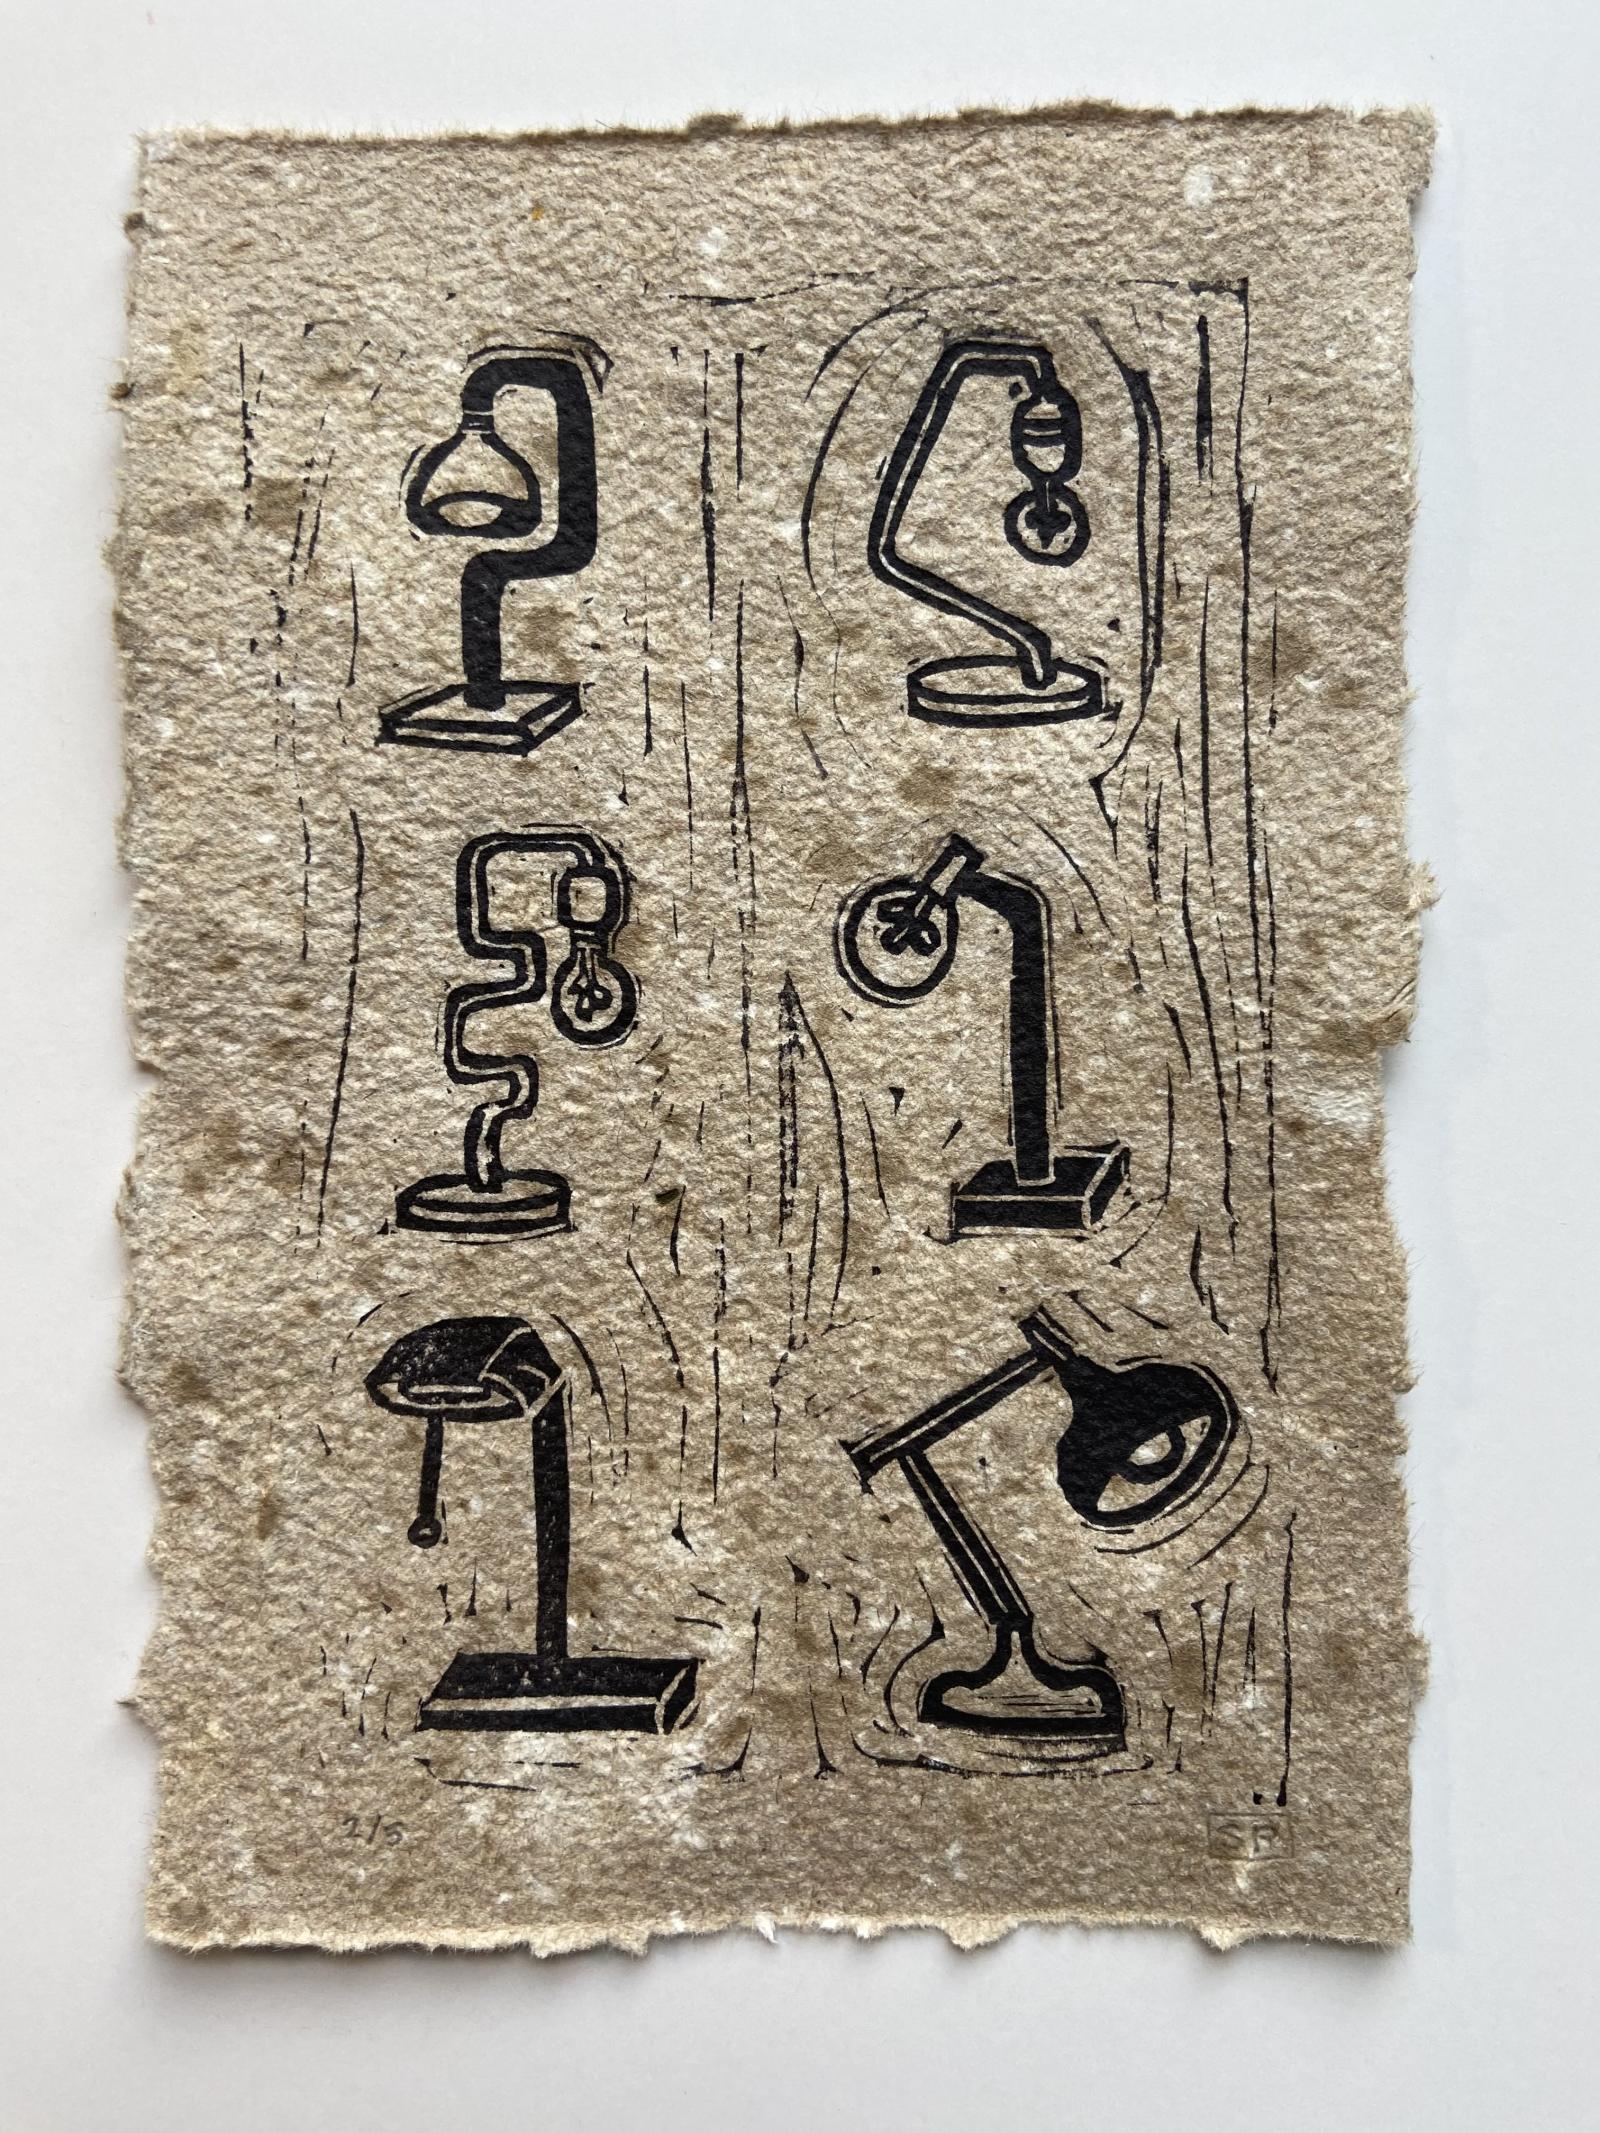 2/5
SR